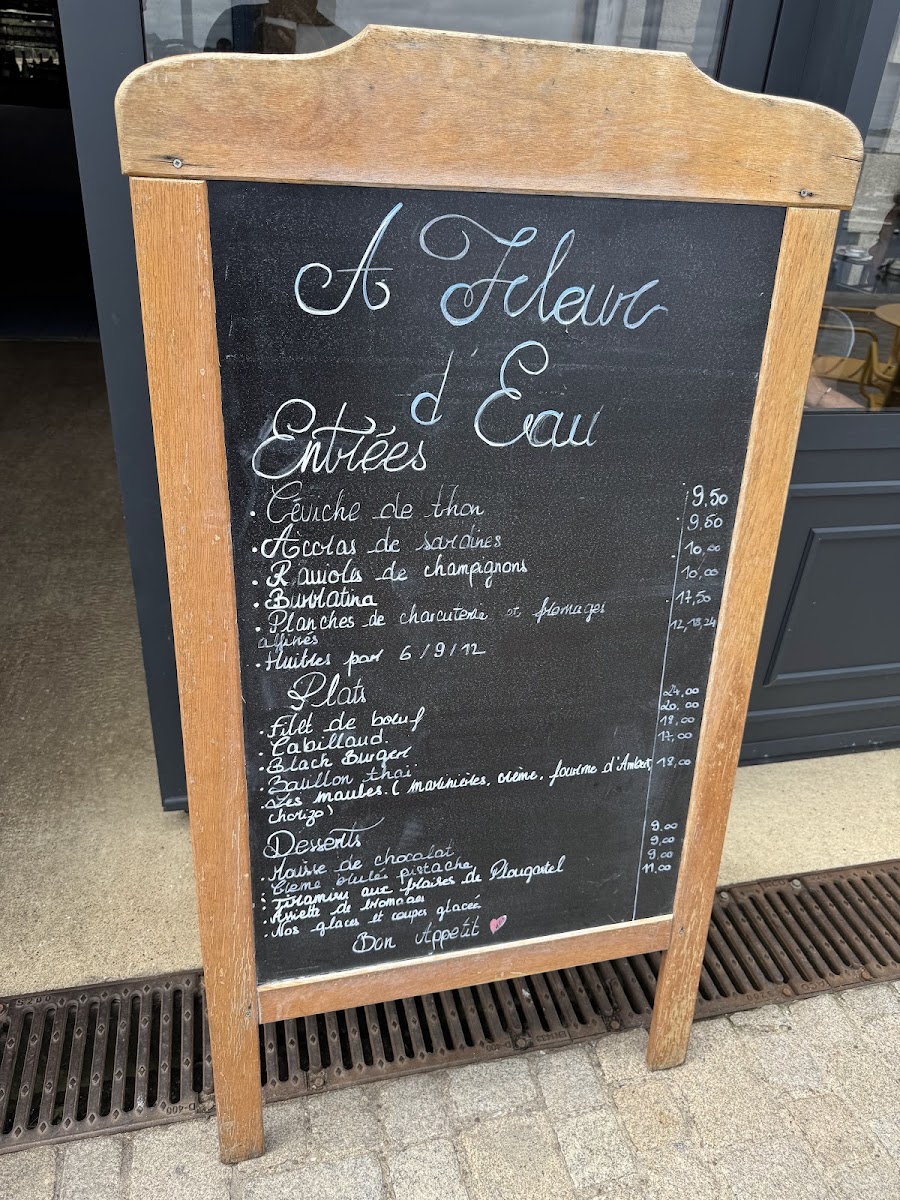 A Fleur
d'Eau
Entrées
. Céviche de thon 9,50
. Accras de sardines 9,50
. Ravioles de champignons 10,00
. Burratina 10,00
. Planches de charcuterie et fromages 17,50
affinés
. Huitres par 6/9/12 12,18,24
Plats
. Filet de bœuf 24,00
. Cabillaud. 20,00
. Black Burger 18,00
. Bouillon thaï 17,00
. Les moules. ( marinières, crème, fourme d'Ambert, 18,00
chorizo)
Desserts
. Mousse de chocolat 9.00
. Crème brulée pistache 9.00
. Tiramisu aux fraises de Plougastel 9.00
. Assiette de fromages 11,00
. Nos glaces et coupes glacées
Bon Appetit